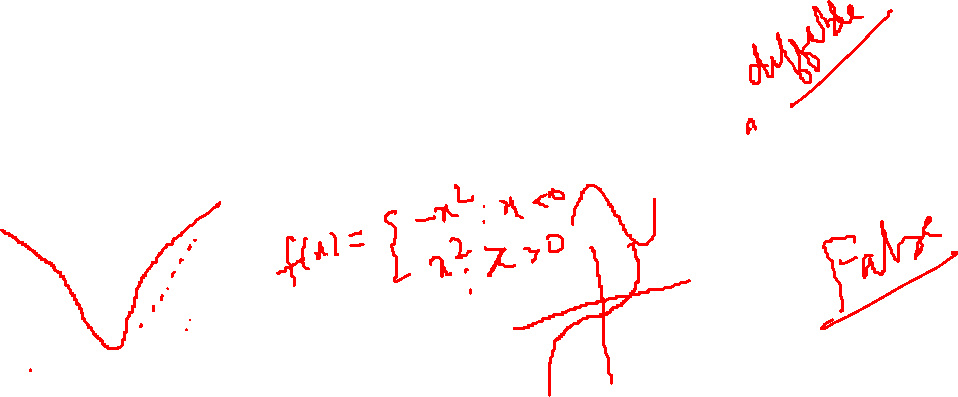 diffable
f(x) = { -x² : x <0
x² : x >0
False